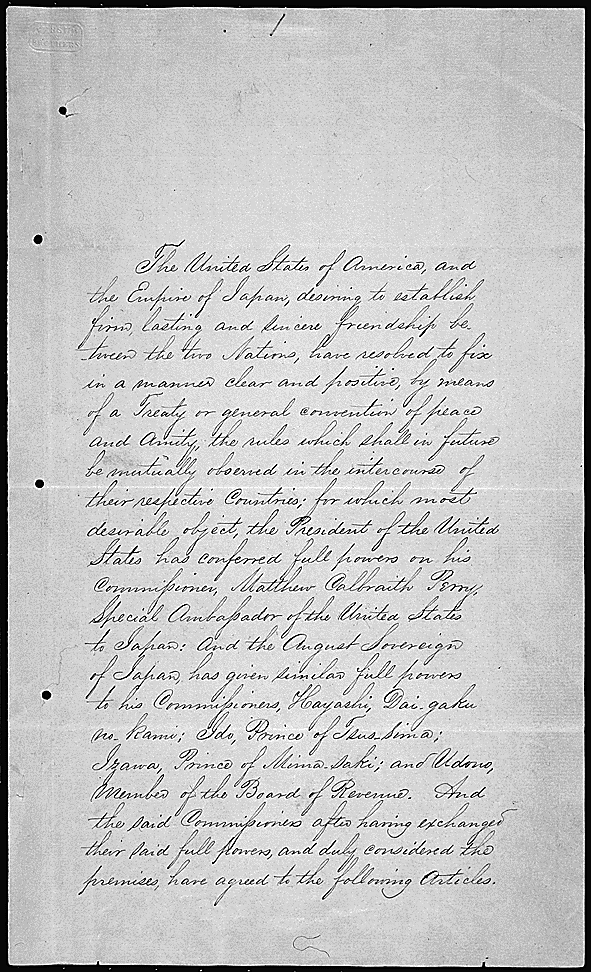 The United States of America, and
the Empire of Japan, desiring to establish
firm, lasting and sincere friendship be
tween the two Nations, have resolved to fix
in a manner clear and positive, by means
of a Treaty or general convention of peace
and Amity, the rules which shall in future
be mutually observed in the intercourse of
their respective Countries; for which most
desirable object, the President of the United
States has conferred full powers on his
Commissioner, Matthew Calbraith Perry,
Special Ambassador of the United States
to Japan: And the August Sovereign
of Japan, has given similar full powers
to his Commissioners, Hayashi, Dai-gaku
no-kami; Ido, Prince of Tsus-sima;
Izawa, Prince of Mima-saki; and Udono,
Member of the Board of Revenue. And
the said Commissioners after having exchanged
their said full powers, and duly considered the
premises, have agreed to the following Articles.